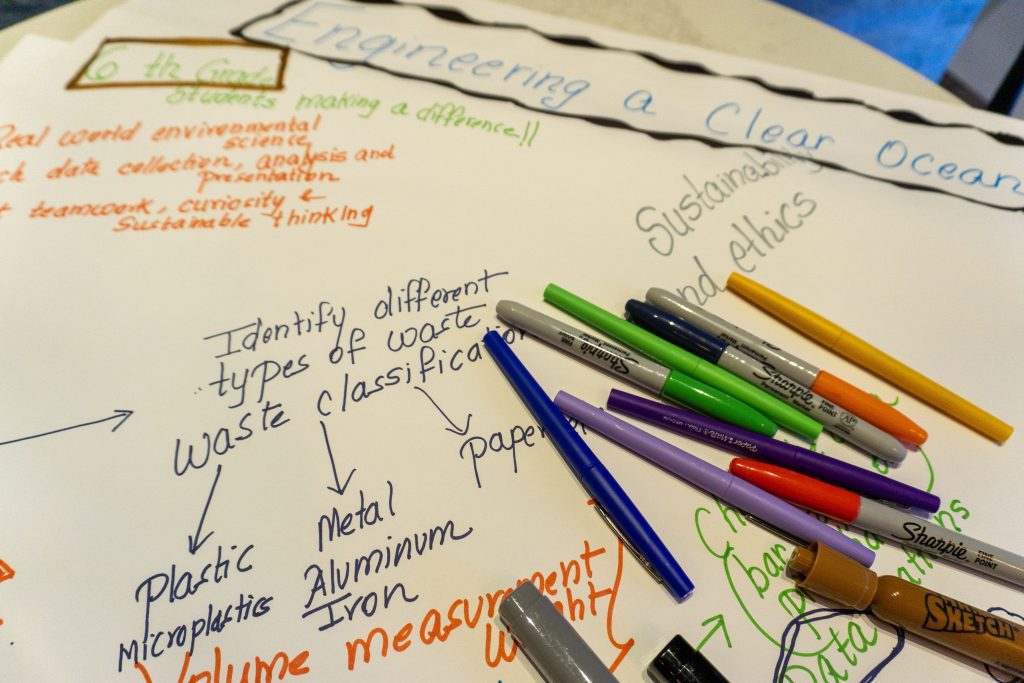 Engineering a Clear Ocean
6 th Grade
Students making a difference!!
Real world environmental
science
data collection, analysis and
presentation
teamwork, curiosity ←
Sustainable thinking
Sustainability
and ethics
Identify different
types of waste
waste classification
Plastic
Microplastics
Metal
Aluminum
Iron
Volume measurement
Data
Sharpie
FINE POINT
Sharpie
FINE POINT
Sharpie
FINE POINT
Paper Mate
SKETCH